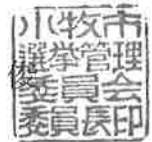 俊
小牧市
選挙管理
委員会
委員長印